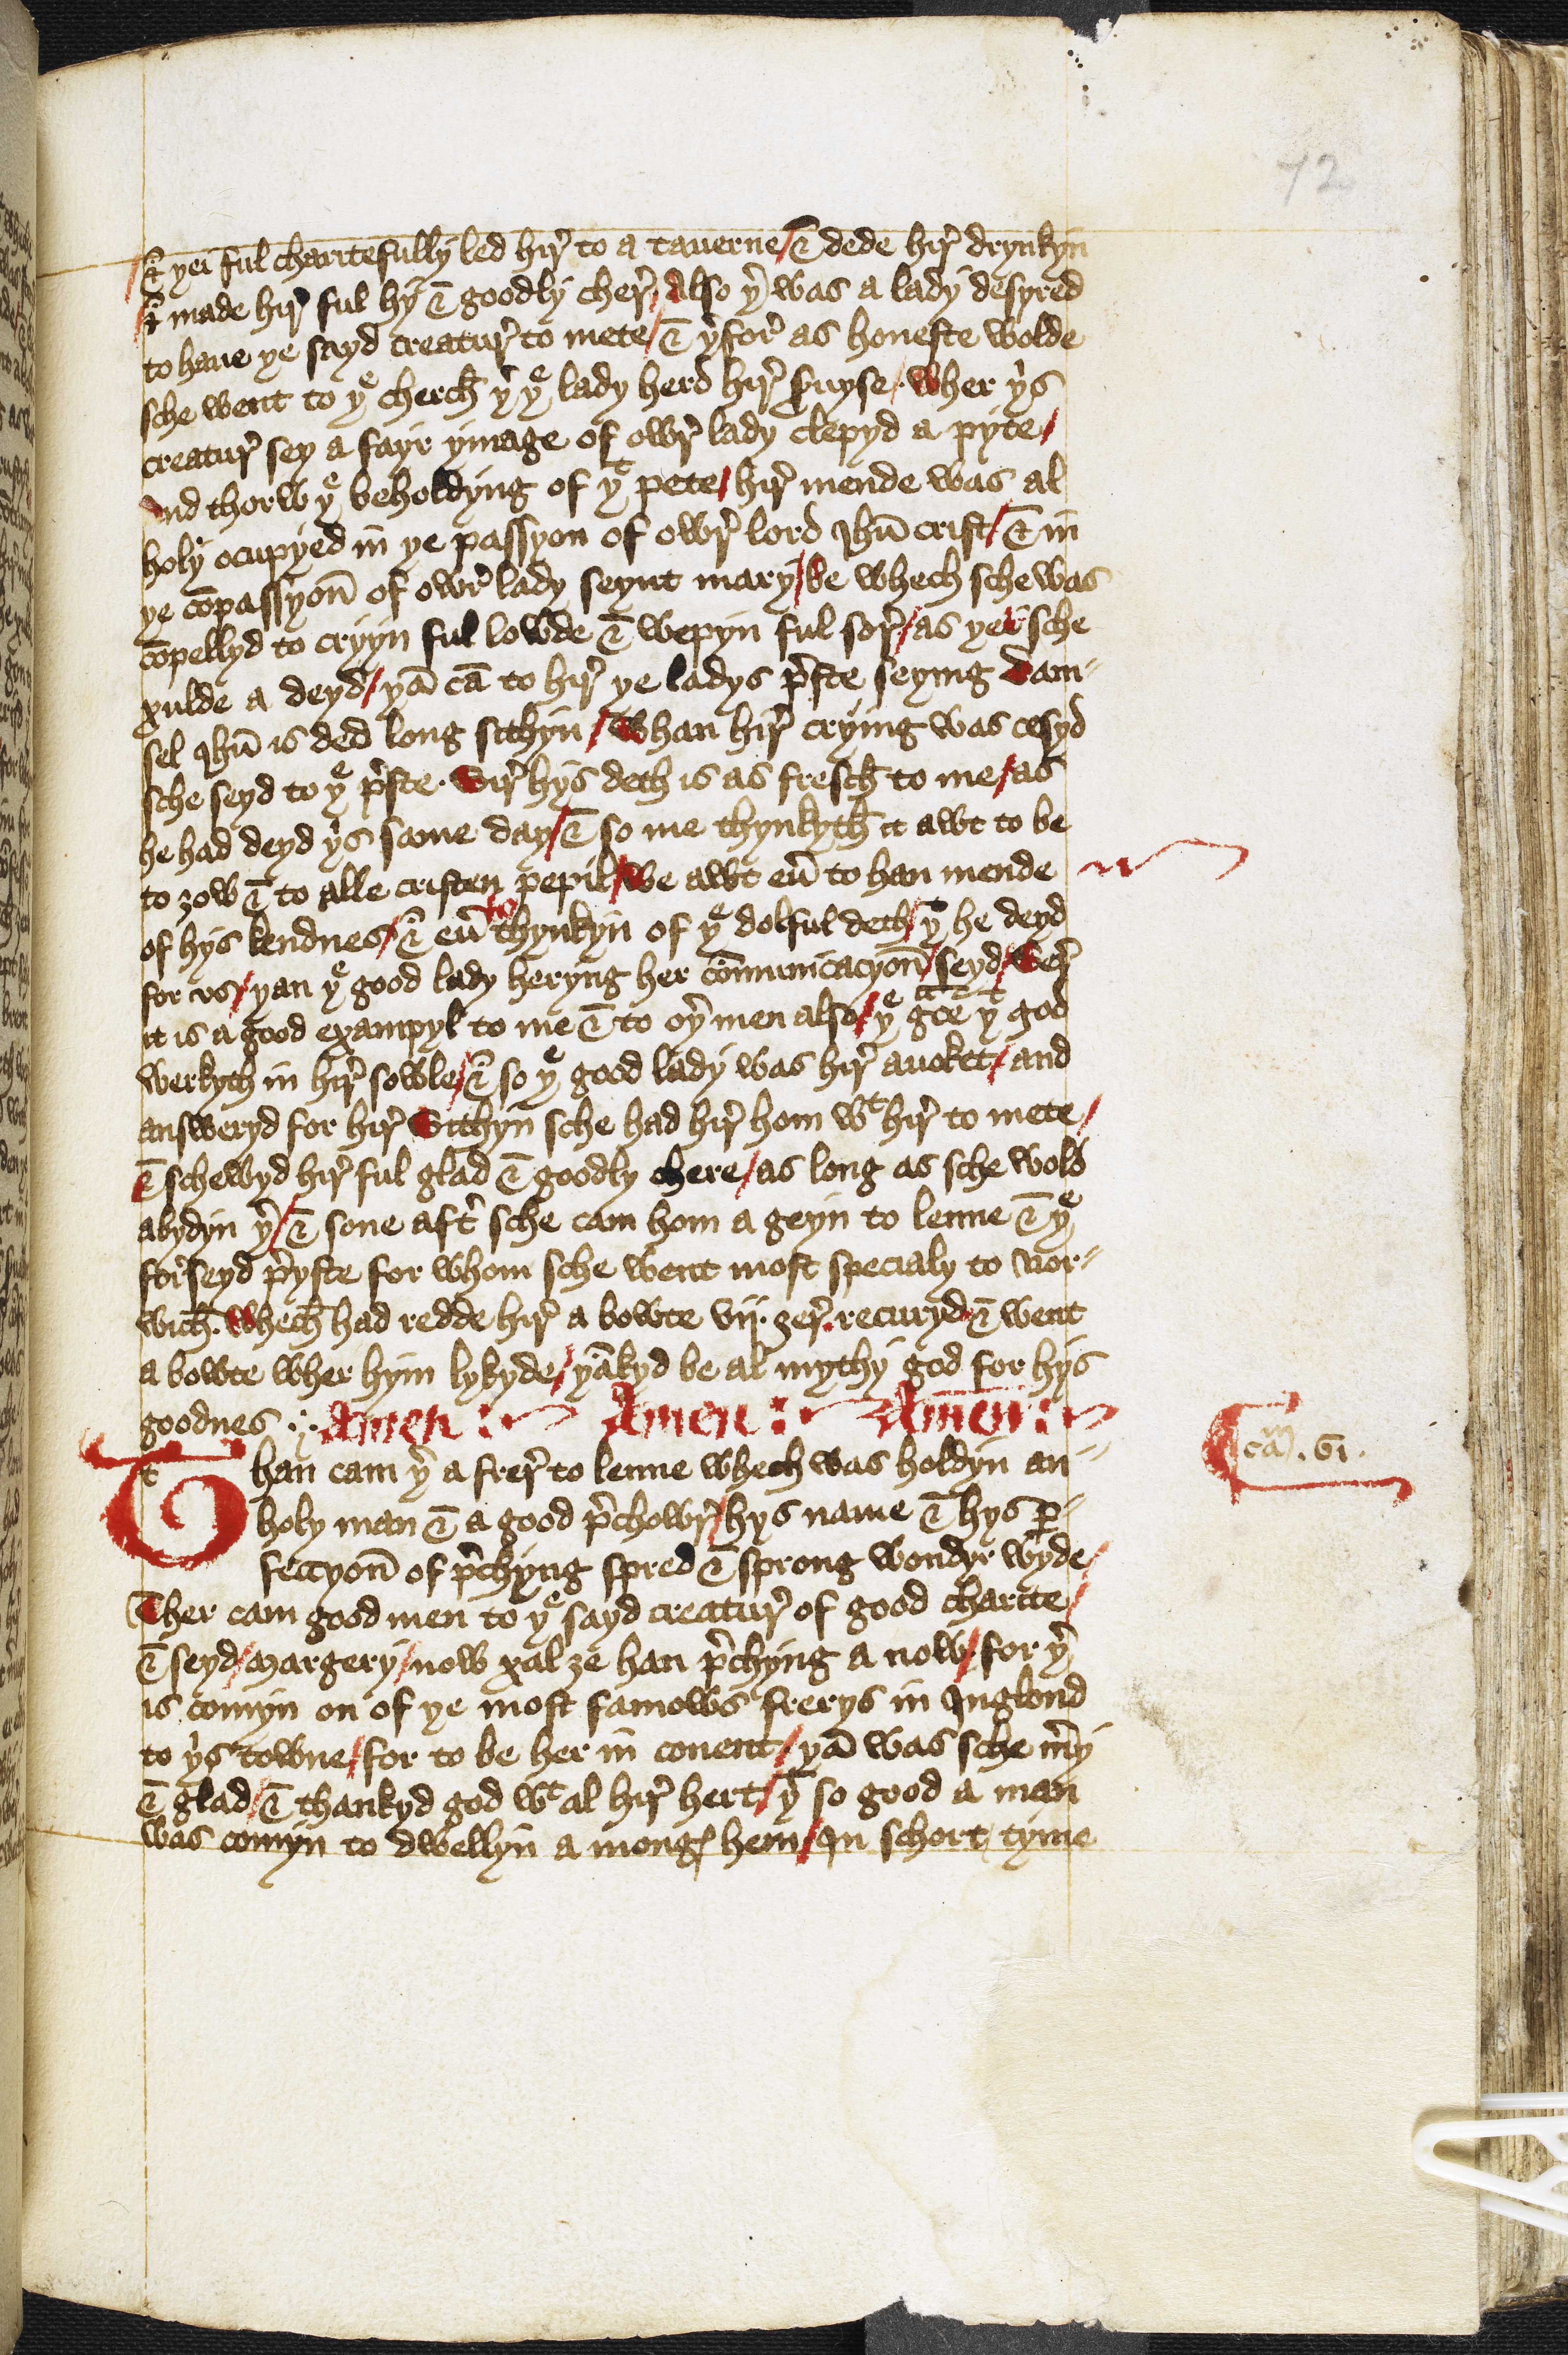 72
& yei ful charitefully led hir to a tauerne / & dede hir drynkyn
& made hir ful hy & goodly cher / Also yͬ was a lady desyred
to haue ye sayd creatur to mete / & yͬfor as honeste wolde
sche went to yͤ cherch yͬ yͤ lady herd hir seruyse / wher yͥs
creatur sey a fayr ymage of owr lady clepyd a pyte /
And thorw yͤ beholdyng of yͭ pete / hir mende was al
holy ocupyed in ye passyon of owr lord Ihū crist / & in
ye cōpassyon̄ of owr lady seynt mary / be whech sche was
cōpellyd to cryyn ful lowde & wepyn ful sor / as yei sche
xulde a deyd / yā cā to hir ye ladys pͬste seying Dam=
sel Ihū is ded long sithyn / Whan hir crying was cesyd
sche seyd to yͤ pͬste . Sir hys deth is as fresch to me / as
he had deyd yͥs same day / & so me thynkyth it awt to be
to ȝow & to alle cristen pepil / We awt eū to han mende
of hys kendnes / & eū to thynkyn of yͤ dolful deth / yͭ he deyd
for vs / yan yͤ good lady heryng her cōmunicacyon̄ / seyd / Ser
it is a good exampyl to me & to oyͬ men also / yͤ gͣce yͭ god
werkyth in hir sowle / & so yͤ good lady was hir auoket / and
answeryd for hir Sithyn sche had hir hom wͭ hir to mete /
& schewyd hir ful glad & goodly chere / as long as sche wold
abydyn yͬ / & sone aftͬ sche cam hom a geyn to lenne & yͤ
forseyd pͬyste for whom sche went most specialy to nor=
wich . Whech had redde hir a bowte vij . ȝer . recuryd & went
a bowte wher hym lykyde / yākyd be al mythy god for hys
goodnes . Amen : Amen : Amen :
Than cam yͬ a frer to lenne whech was holdyn an=
holy man & a good pͬchowr / hys name & hys ꝑ=
feccyon̄ of pͬchyng spred & sprong wondyr wyde /
cam . 61 .
Ther cam good men to yͤ sayd creatur of good charite /
& seyd / Margery / now xal ȝe han pͬchyng a now / for yͬ
is comyn on of ye most famows frerys in Inglond
to yͥs towne / for to be her in couent / yā was sche mͬy
& glad / & thankyd god wͭ al hir hert / yͭ so good a man
was comyn to dwellyn a mongꝭ hem / In schort tyme